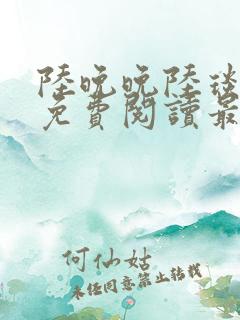 陸晚晚陸淡
免費閱讀最
何仙姑
未经同意禁止转载